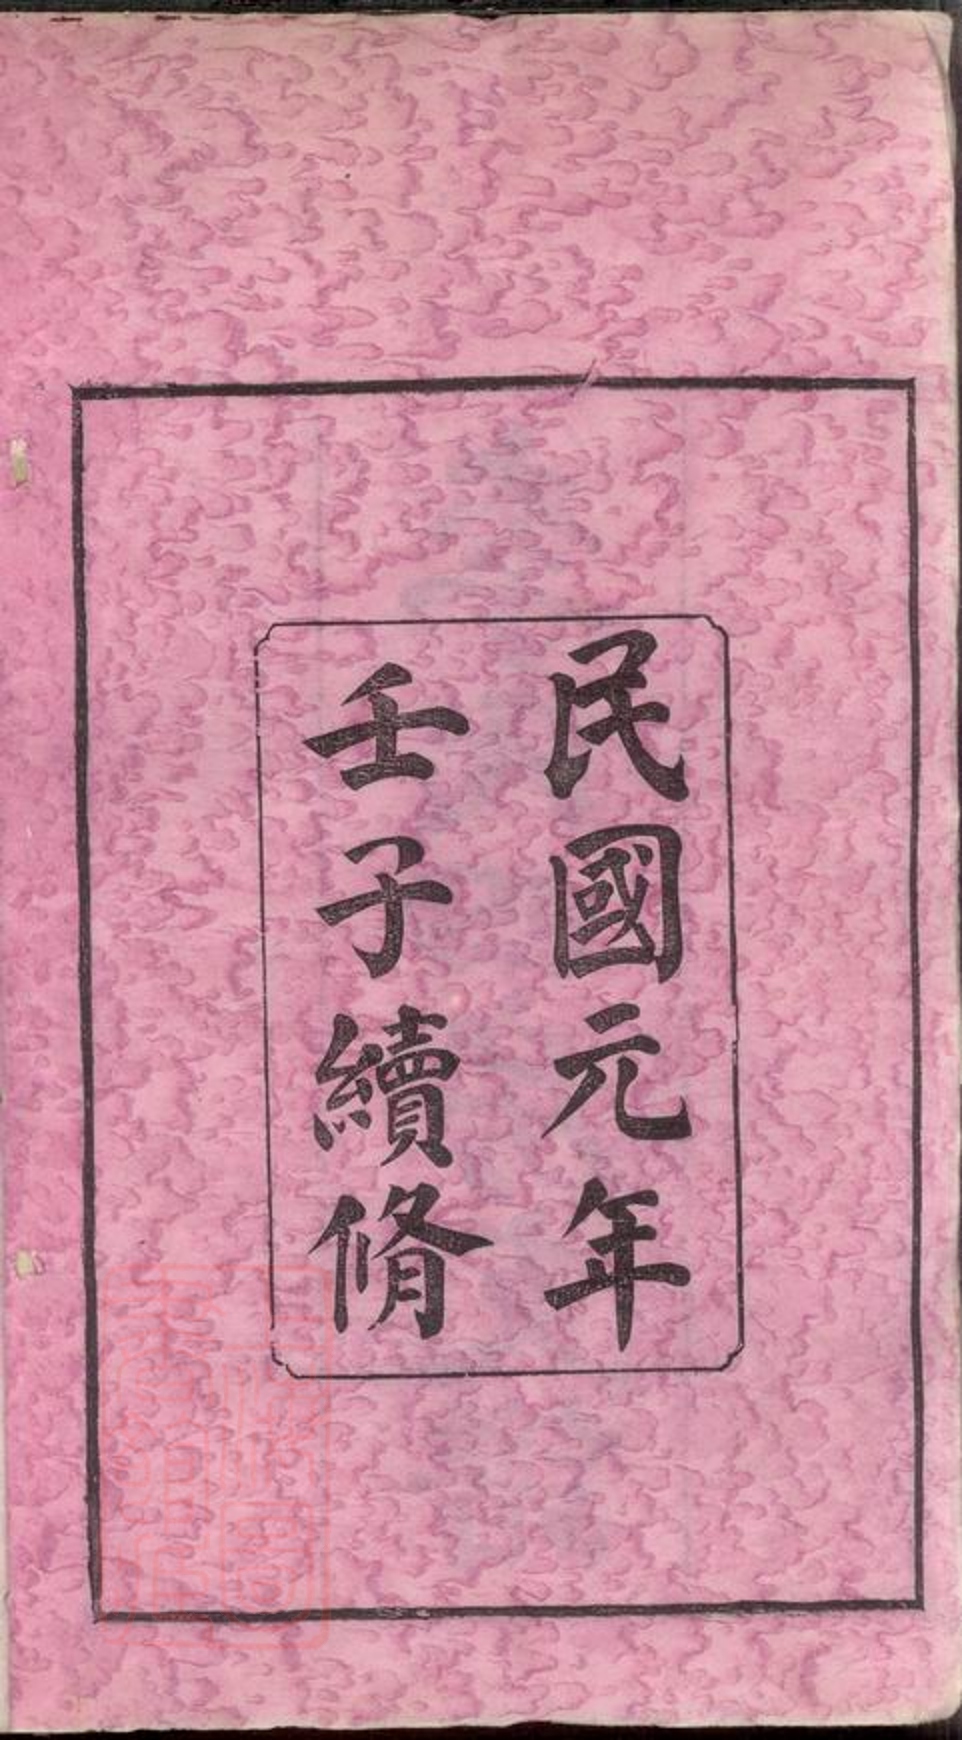 民國元年
壬子續脩